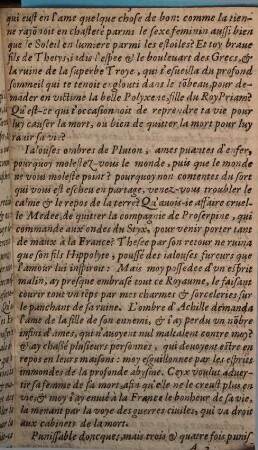 qui eust en l'ame quelque chose de bon: comme la tien-
ne rayonoit en chasteté parmi le sexe feminin aussi bien
que le Soleil en lumiere parmi les estoiles? Et toy braue
fils de Thetys, iadis l'espee & le bouleuart des Grecs, &
la ruine de la superbe Troye, qui t'esueilla du profond
sommeil qui te tenoit englouti dans le tõbeau, pour de-
mãder en victime la belle Polyxene, fille du Roy Priam?
Qu'est-ce qui t'occasionoit de reprendre ta vie pour
luy causer la mort, ou bien de quitter la mort pour luy
rauir sa vie?
Ialouses ombres de Pluton, ames puantes d'enfer,
pourquoy molestez-vous le monde, puis que le monde
ne vous moleste point? pourquoy non contentes du sort
qui vous est escheu en partage, venez-vous troubler le
calme & le repos de la terre? Qu'auois-ie affaire cruel-
le Medee de quitter la compagnie de Proserpine, qui
commande aux ondes du Styx, pour venir porter tant
de maux à la France? Thesee par son retour ne ruina
que son fils Hippolyte, poussé des ialouses fureurs que
l'amour lui inspiroit: Mais moy possedee d'vn esprit
malin, ay presque embrasé tout ce Royaume, le faisant
courir tout vn tẽps par mes charmes & sorceleries sur
le panchant de sa ruine. L'ombre d'Achille demanda
l'ame de la fille de son ennemi, & i'ay perdu vn nõbre
infini d'ames, qui n'auoyent nul maltalent contre moy?
& ay chassé plusieurs personnes, qui deuoyent estre en
repos en leurs maisons: moy esguillonnee par les esprits
immondes de la profonde abysme. Ceyx voulut aduer-
tir sa femme de sa mort, afin qu'elle ne le creust plus en
vie, & moy i'ay enuié à la France le bonheur de sa vie,
la menant par la voye des guerres ciuiles, qui va droit
aux cabinets de la mort.
Punissable doncques, mais trois & quatre fois punis